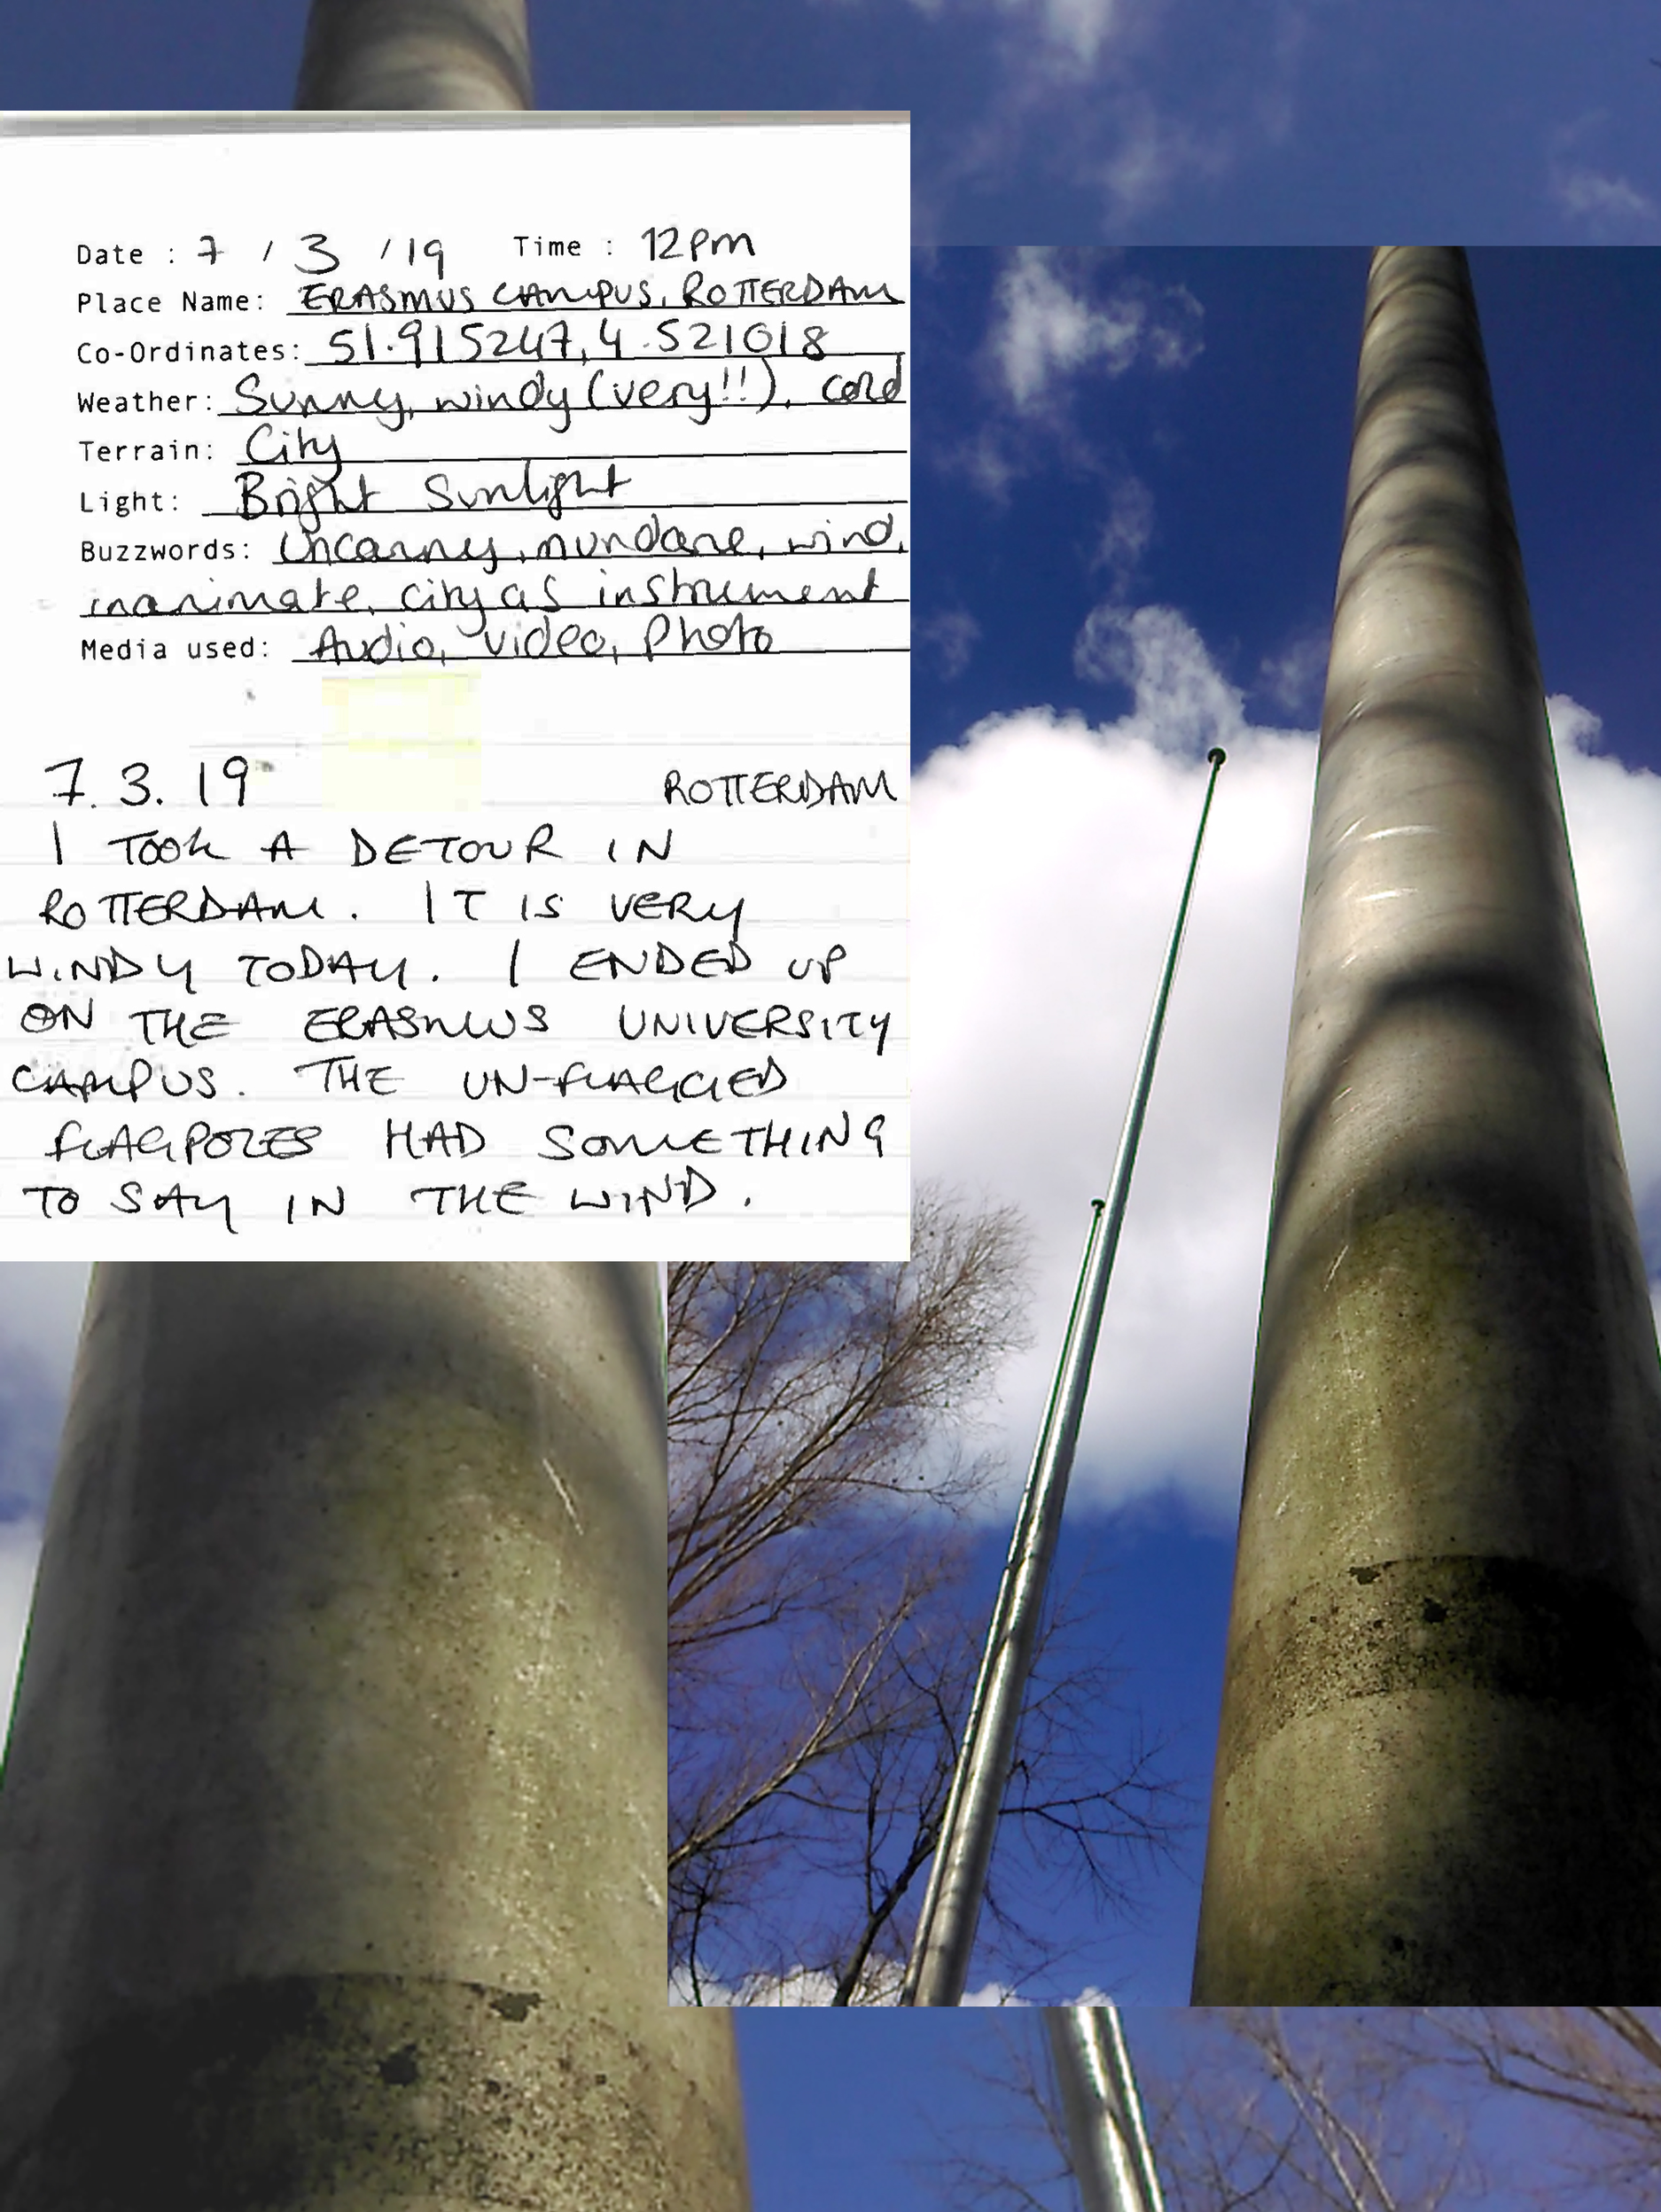 Date : 7 / 3 / 19 Time : 12pm
Place Name: ERASMUS CAMPUS, ROTTERDAM
Co-Ordinates: 51.915247, 4.521018
Weather: Sunny, windy (very!!), cold
Terrain: City
Light: Bright Sunlight
Buzzwords: Uncanny, mundane, wind,
inanimate, city as instrument
Media used: Audio, video, photo
7.3.19 ROTTERDAM
I TOOK A DETOUR IN
ROTTERDAM. IT IS VERY
WINDY TODAY. I ENDED UP
ON THE ERASMUS UNIVERSITY
CAMPUS. THE UN-FLAGGED
FLAGPOLES HAD SOMETHING
TO SAY IN THE WIND.